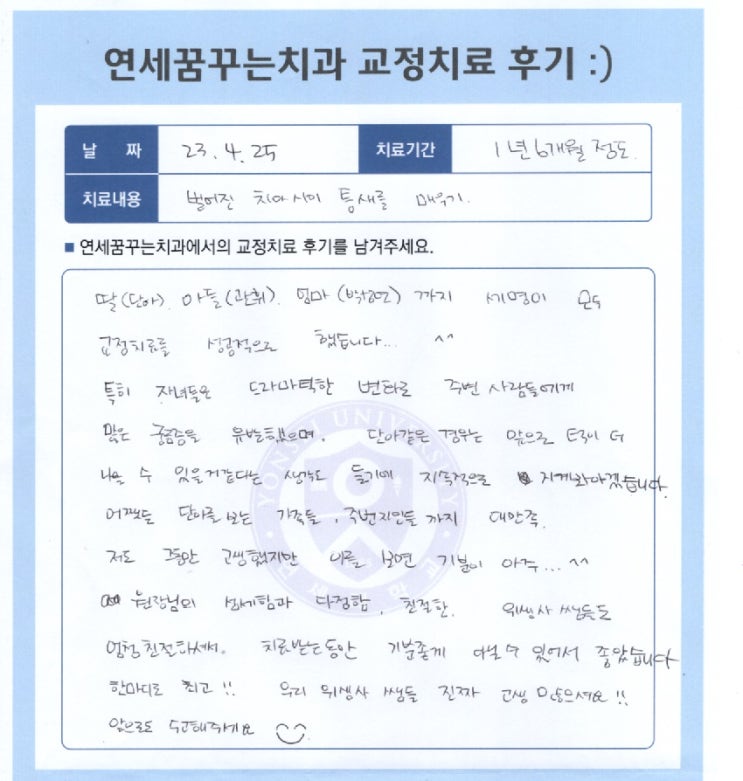 연세꿈꾸는치과 교정치료 후기 :)
날 짜 23. 4. 25 치료기간 1년 6개월 정도.
치료내용 벌어진 치아사이 틈새를 메우기.
■ 연세꿈꾸는치과에서의 교정치료 후기를 남겨주세요.
딸(단아). 아들(관휘). 엄마 까지 세명이 모두
교정치료를 성공적으로 했습니다... ^^
특히 자녀들은 드라마틱한 변화로 주변 사람들에게
많은 궁금증을 유발했으며. 단아같은 경우는 앞으로 더
나올 수 있을거같다는 생각도 들기에 지속적으로 지켜봐야겠습니다.
어쨌든 단아를 보는 가족들, 주변지인들 까지 대만족.
저도 그동안 고생했지만 이를 보면 기분이 아주... ^^
원장님의 섬세함과 다정함, 친절한. 위생사 쌤들도
엄청친절하셔서. 치료받는동안 기분좋게 다닐 수 있어서 좋았습니다
한마디로 최고!! 우리 위생사 쌤들 진짜 고생 많으셔요!!
앞으로도 수고해주세요
YONSEI UNIVERSITY